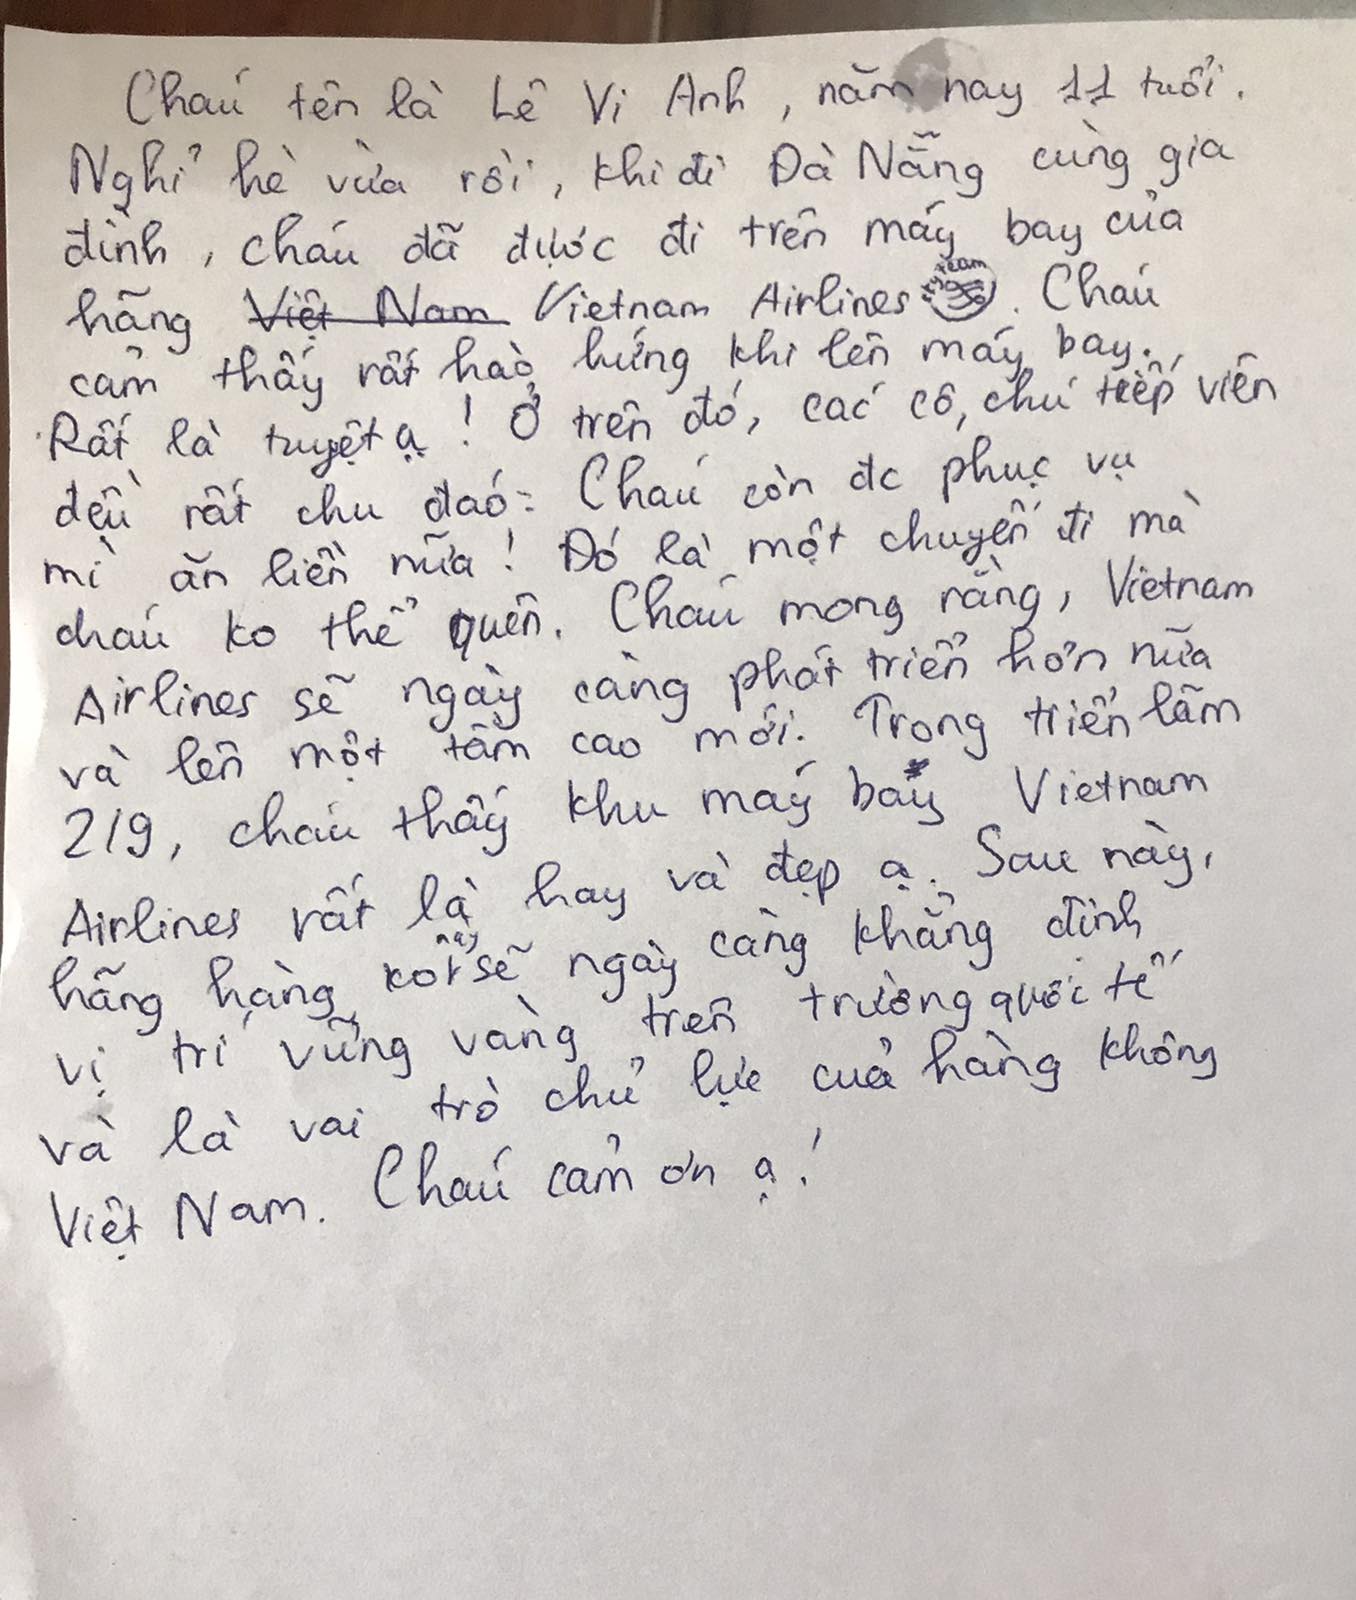 Cháu tên là Lê Vi Anh, năm nay 11 tuổi.
Nghỉ hè vừa rồi, khi đi Đà Nẵng cùng gia
đình, cháu đã được đi trên máy bay của
hãng Việt Nam Vietnam Airlines. Cháu
cảm thấy rất hào hứng khi lên máy bay.
Rất là tuyệt ạ! Ở trên đó, các cô, chú tiếp viên
đều rất chu đáo. Cháu còn đc phục vụ
mì ăn liền nữa! Đó là một chuyến đi mà
cháu ko thể quên. Cháu mong rằng, Vietnam
Airlines sẽ ngày càng phát triển hơn nữa
và lên một tầm cao mới. Trong triển lãm
2/9, cháu thấy khu máy bay Vietnam
Airlines rất là hay và đẹp ạ. Sau này,
hãng hàng này sẽ ngày càng khẳng định
vị trí vững vàng trên trường quốc tế
và là vai trò chủ lực của hàng không
Việt Nam. Cháu cảm ơn ạ!